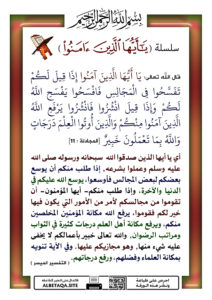 بسم الله الرحمن الرحيم
سلسلة ﴿يَٰٓأَيُّهَا ٱلَّذِينَ ءَامَنُوا۟﴾
قال الله تعالى: يَا أَيُّهَا الَّذِينَ آمَنُوا إِذَا قِيلَ لَكُمْ
تَفَسَّحُوا فِي الْمَجَالِسِ فَافْسَحُوا يَفْسَحِ اللَّهُ
لَكُمْ وَإِذَا قِيلَ انْشُزُوا فَانْشُزُوا يَرْفَعِ اللَّهُ
الَّذِينَ آمَنُوا مِنْكُمْ وَالَّذِينَ أُوتُوا الْعِلْمَ دَرَجَاتٍ
وَاللَّهُ بِمَا تَعْمَلُونَ خَبِيرٌ [المجادلة - 11]
أي يا أيها الذين صدقوا الله سبحانه ورسوله صلى الله
عليه وسلم وعملوا بشرعه، إذا طلب منكم أن يوسع
بعضكم لبعض المجالس فأوسعوا، يوسع الله عليكم في
الدنيا والآخرة، وإذا طلب منكم- أيها المؤمنون- أن
تقوموا من مجالسكم لأمر من الأمور التي يكون فيها
خير لكم فقوموا، يرفع الله مكانة المؤمنين المخلصين
منكم، ويرفع مكانة أهل العلم درجات كثيرة في الثواب
ومراتب الرضوان، والله تعالى خبير بأعمالكم لا يخفى
عليه شيء منها، وهو مجازيكم عليها. وفي الآية تنويه
بمكانة العلماء وفضلهم، ورفع درجاتهم. [ التفسير الميسر ]
ALBETAQA.SITE
احرص على طباعة
ونشر هذه الورقة